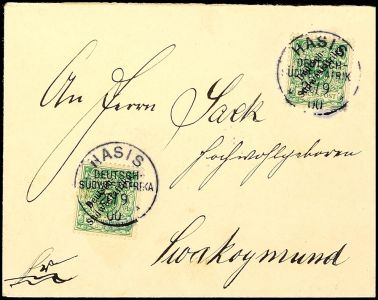 HASIS
DEUTSCH-
SÜDWESTAFRIKA
/9
00
An Herrn Sack
Hochwohlgeboren
HASIS
DEUTSCH-
SÜDWESTAFRIKA
/9
00
Swakopmund